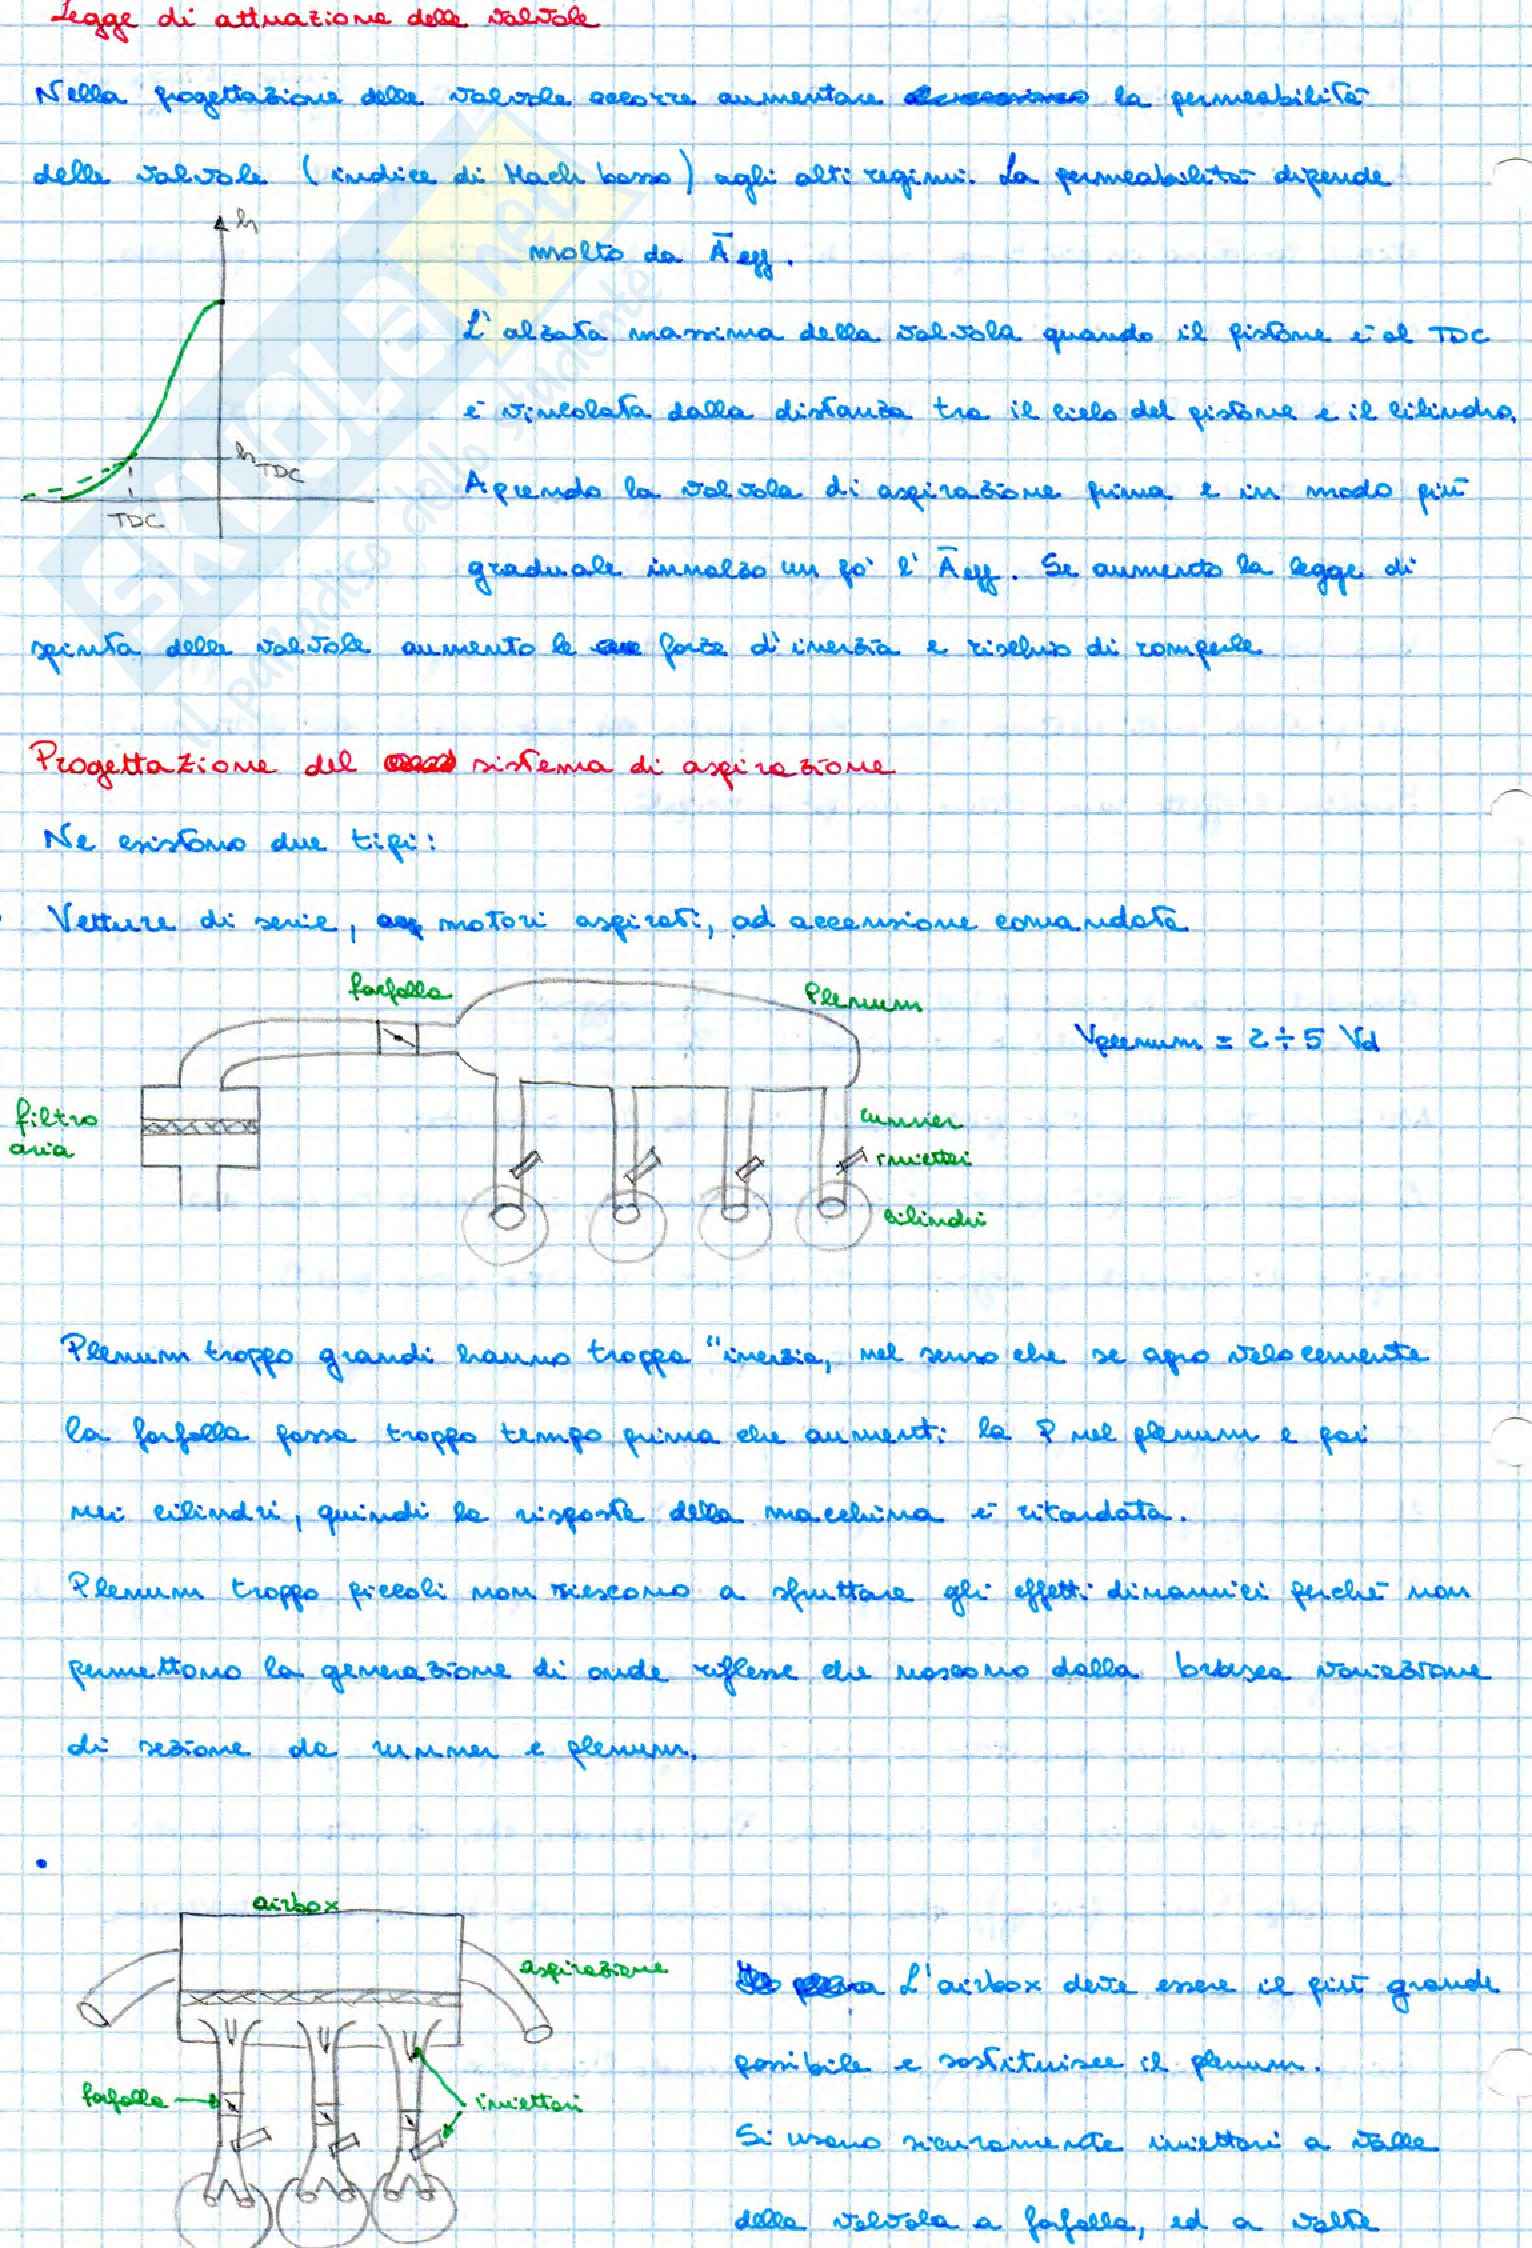 Legge di attuazione delle valvole
Nella progettazione delle valvole occorre aumentare la permeabilità
delle valvole (indice di Mach basso) agli alti regimi. La permeabilità dipende
molto da Āeff.
h
L'alzata massima della valvola quando il pistone è al TDC
è vincolata dalla distanza tra il cielo del pistone e il cilindro.
hTDC
TDC
Aprendo la valvola di aspirazione prima e in modo più
graduale innalzo un po' l'Āeff. Se aumento la legge di
spinta delle valvole aumento le forze d'inerzia e rischio di romperle
Progettazione del sistema di aspirazione
Ne esistono due tipi:
Vetture di serie, motori aspirati, ad accensione comandata
farfalla
Plenum
Vplenum = 2÷5 Vd
filtro
aria
runner
iniettori
cilindri
Plenum troppo grandi hanno troppa "inerzia, nel senso che se apro velocemente
la farfalla passa troppo tempo prima che aumenti la P nel plenum e poi
nei cilindri, quindi la risposta della macchina è ritardata.
Plenum troppo piccoli non riescono a sfruttare gli effetti dinamici perché non
permettono la generazione di onde riflesse che nascono dalla brusca variazione
di sezione da runner e plenum.
•
airbox
aspirazione
L'airbox deve essere il più grande
possibile e sostituisce il plenum.
farfalla
iniettori
Si usano sicuramente iniettori a valle
della valvola a farfalla, ed a volte
SKUOLA.net
il paradiso dello studente